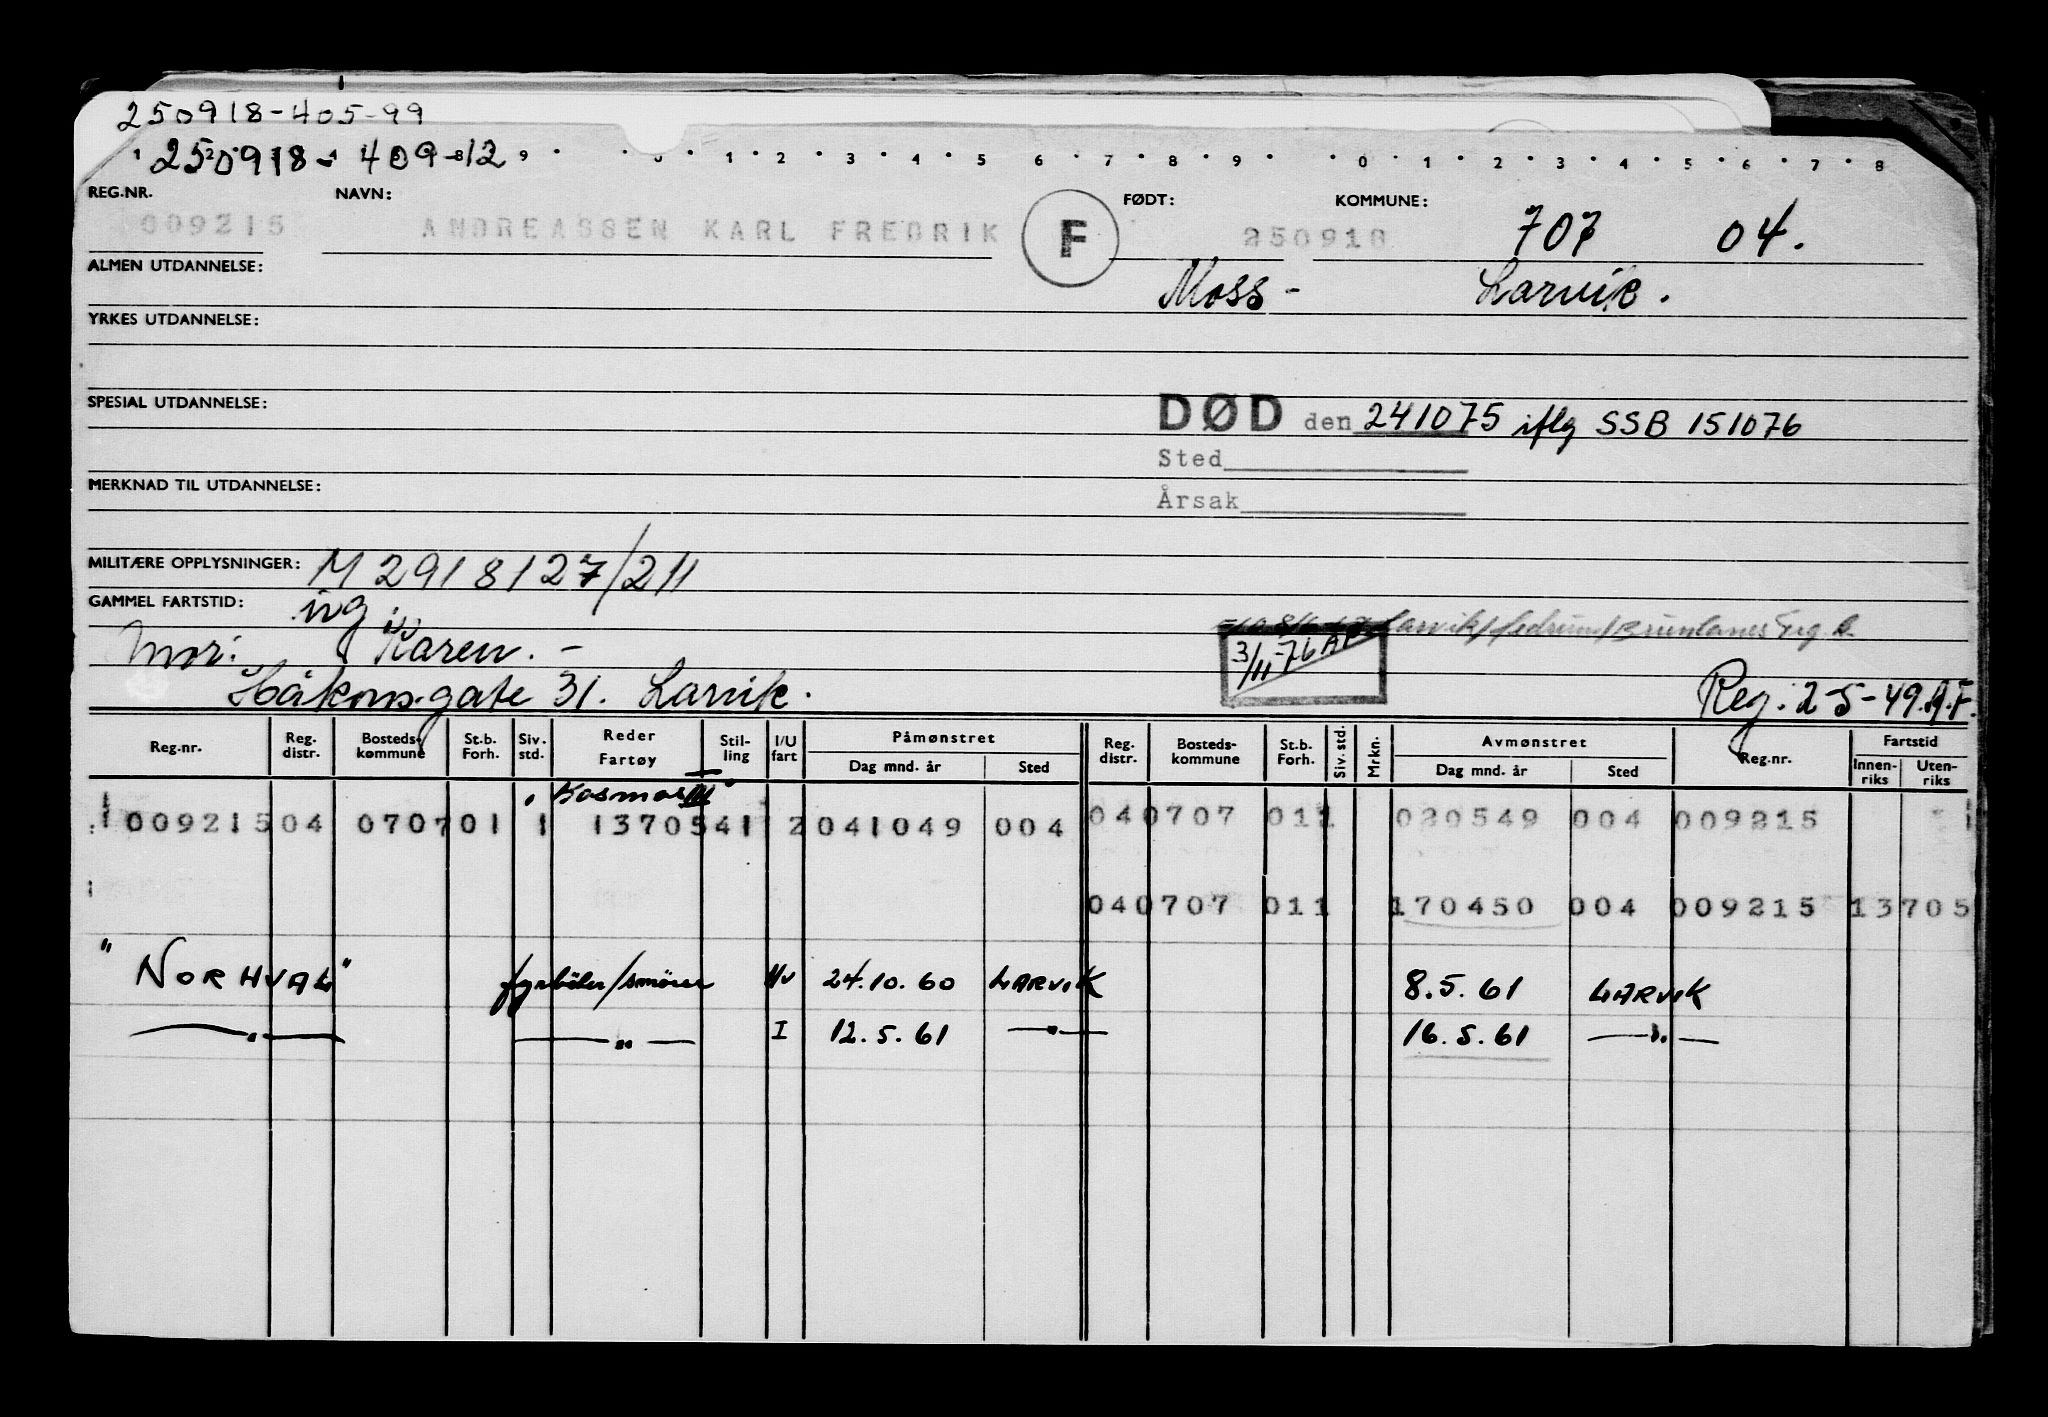 250918-405-99
250918-409-12
9 . . 0 . 1 . 2 . 3 . 4 . 5 . 6 . 7 . 8 . 9 . . 0 . 1 . 2 . 3 . 4 . 5 . 6 . 7 . 8
REG.NR. NAVN: FØDT: KOMMUNE:
009215 ANDREASSEN KARL FREDRIK F 250918 707 04.
ALMEN UTDANNELSE: Moss - Larvik.
YRKES UTDANNELSE:
SPESIAL UTDANNELSE: DØD den 241075 iflg SSB 151076
Sted
MERKNAD TIL UTDANNELSE: Årsak
MILITÆRE OPPLYSNINGER: M 2918127/211
GAMMEL FARTSTID: ivg
Mor: Karen. - 3/11-76 AP
Håkonsgate 31. Larvik. Reg. 2-5-49. A.F.
Reg.nr. Reg. distr. Bosteds-kommune St.b. Forh. Siv. std. Reder Fartøy Stil-ling I/U fart Påmønstret Dag mnd. år Sted Reg. distr. Bosteds-kommune St.b. Forh. Siv. std. Mrkn. Avmønstret Dag mnd. år Sted Reg.nr. Fartstid Innen-riks Uten-riks
"Kosmos III"
009215 04 0707 01 1 13705 41 2 041049 004 04 0707 01 1 020549 004 009215
04 0707 01 1 170450 004 009215 13705
"NORHVAL" fyrbøter/smører Uv 24.10.60 LARVIK 8.5.61 LARVIK
— " — — " — I 12.5.61 — " — 16.5.61 — " —